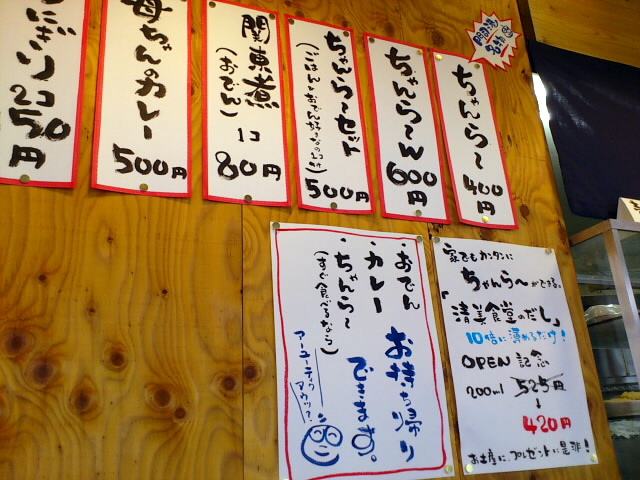 ちゃんら〜
400円
ちゃんら〜ん
600円
ちゃんら〜セット
500円
関東煮
(おでん)
1コ
80円
母ちゃんのカレー
500円
にぎり
2コ
50円
家でもカンタンに
ちゃんら〜ができる。
「清美食堂のだし」
10倍に薄めるだけ!
OPEN 記念
200ml 525円
↓
420円
お土産に、プレゼントに是非!
・おでん
・カレー
・ちゃんら〜
(すぐ食べるなら)
お持ち帰り
できます。